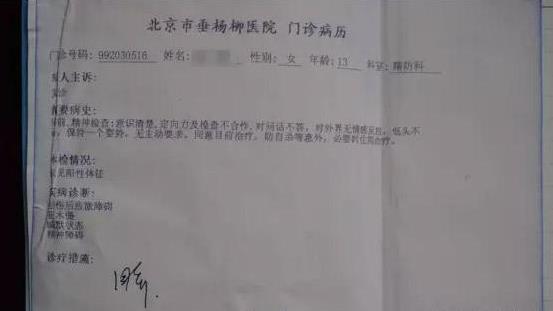 北京市垂杨柳医院 门诊病历
门诊号码: 992030516 姓名: 性别: 女 年龄: 13 科室: 精防科
病人主诉:
现病史:
目前,精神检查:意识清楚,定向力及检查不合作,对问话不答,对外界无情感反应,低头不
保持一个姿势,无主动要求,同意目前治疗,防自杀等意外,必要时住院治疗。
体检情况:
未见阳性体征
疾病诊断:
创伤后应激障碍
亚木僵
缄默状态
精神障碍
诊疗措施: